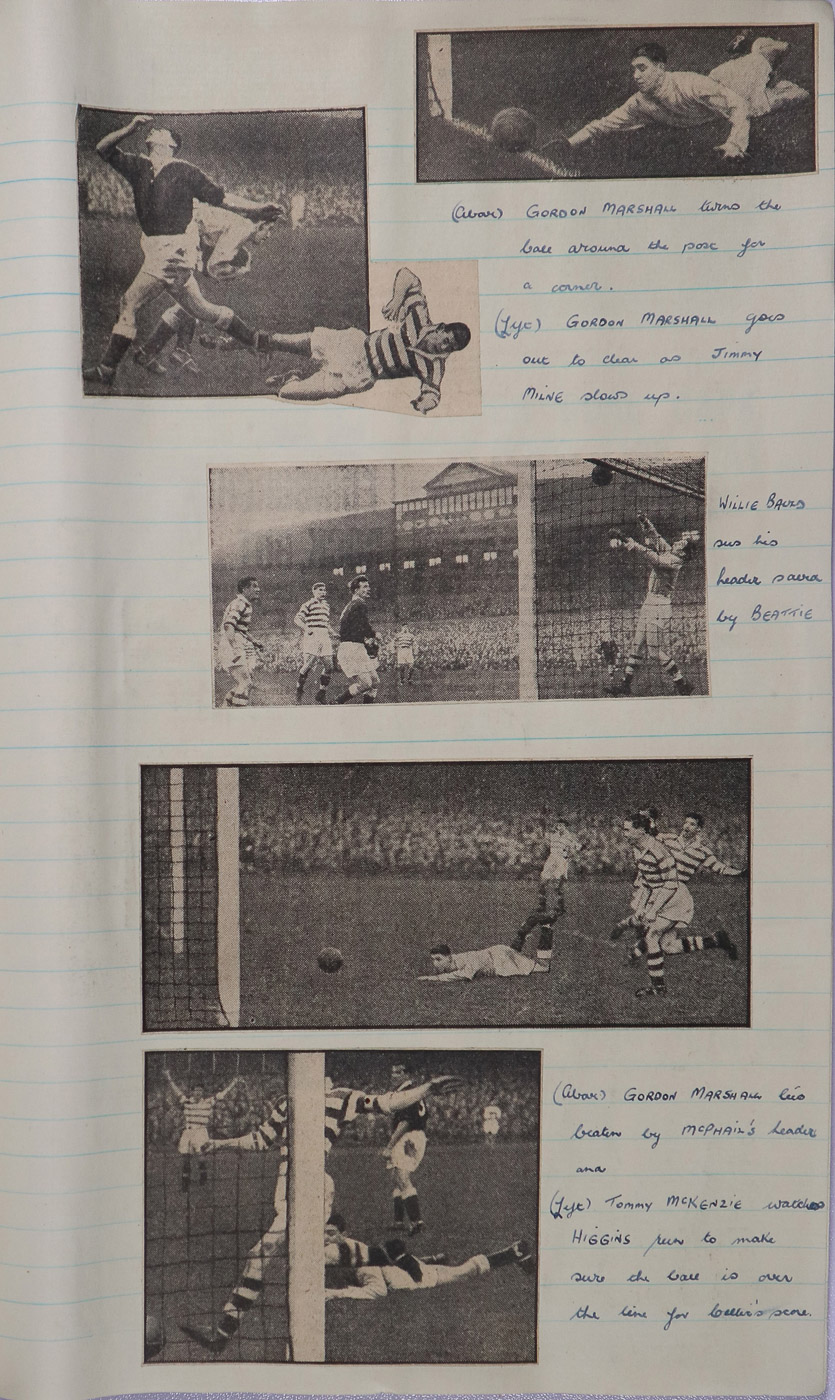 (Above) GORDON MARSHALL turns the
ball around the post for
a corner.
(Left) GORDON MARSHALL goes
out to clear as JIMMY
MILNE slows up.
WILLIE BAULD
sees his
header saved
by BEATTIE
(Above) GORDON MARSHALL lies
beaten by McPHAIL'S header
and
(Left) TOMMY McKENZIE watches
HIGGINS run to make
sure the ball is over
the line for Celtic's score.